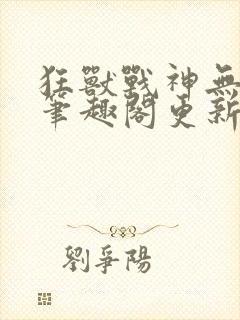 狂獸戰神無
筆趣閣更新
劉爭陽